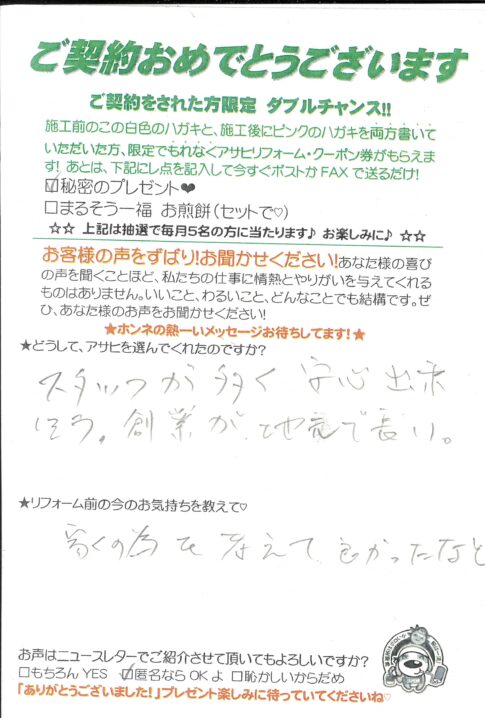 ご契約おめでとうございます
ご契約をされた方限定 ダブルチャンス!!
施工前のこの白色のハガキと、施工後にピンクのハガキを両方書いて
いただいた方、限定でもれなくアサヒリフォーム・クーポン券がもらえま
す! あとは、下記にレ点を記入して今すぐポストかFAXで送るだけ!
☑秘密のプレゼント❤
□まるそう一福 お煎餅(セットで♡)
☆☆ 上記は抽選で毎月5名の方に当たります♪ お楽しみに♪ ☆☆
お客様の声をずばり!お聞かせください!あなた様の喜び
の声を聞くことほど、私たちの仕事に情熱とやりがいを与えてくれる
ものはありません。いいこと、わるいこと、どんなことでも結構です。ぜ
ひ、あなた様のお声をお聞かせください!
★ホンネの熱ーいメッセージお待ちしてます!★
★どうして、アサヒを選んでくれたのですか?
スタッフが多く 安心出来
そう。創業が、地元で長い。
★リフォーム前の今のお気持ちを教えて♡
の為を考えて良かったなと
お声はニュースレターでご紹介させて頂いてもよろしいですか?
□もちろん YES ☑匿名なら OK よ □恥かしいからだめ
「ありがとうございました!」プレゼント楽しみに待っていてくださいね♡